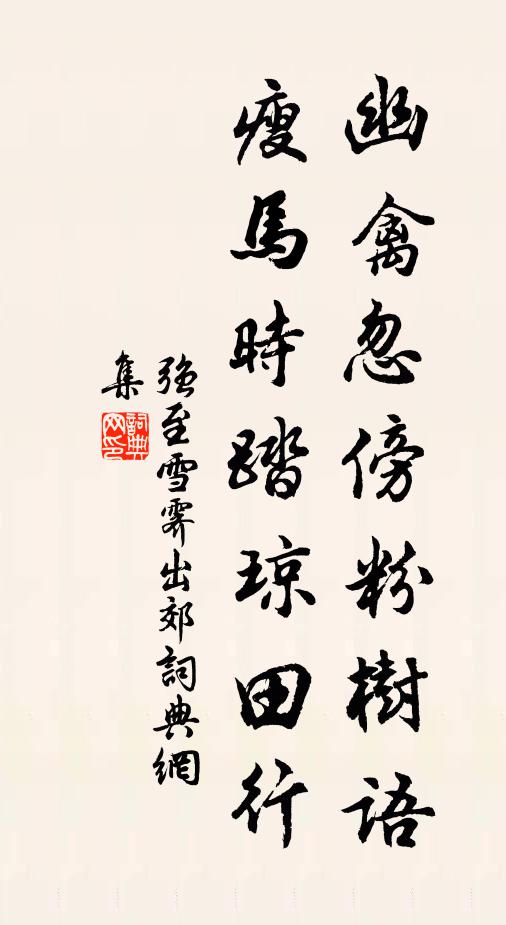 幽禽忽傍粉樹語
瘦馬時踏琼田行
強至雪霽出郊詞典網
集
詞典
网印